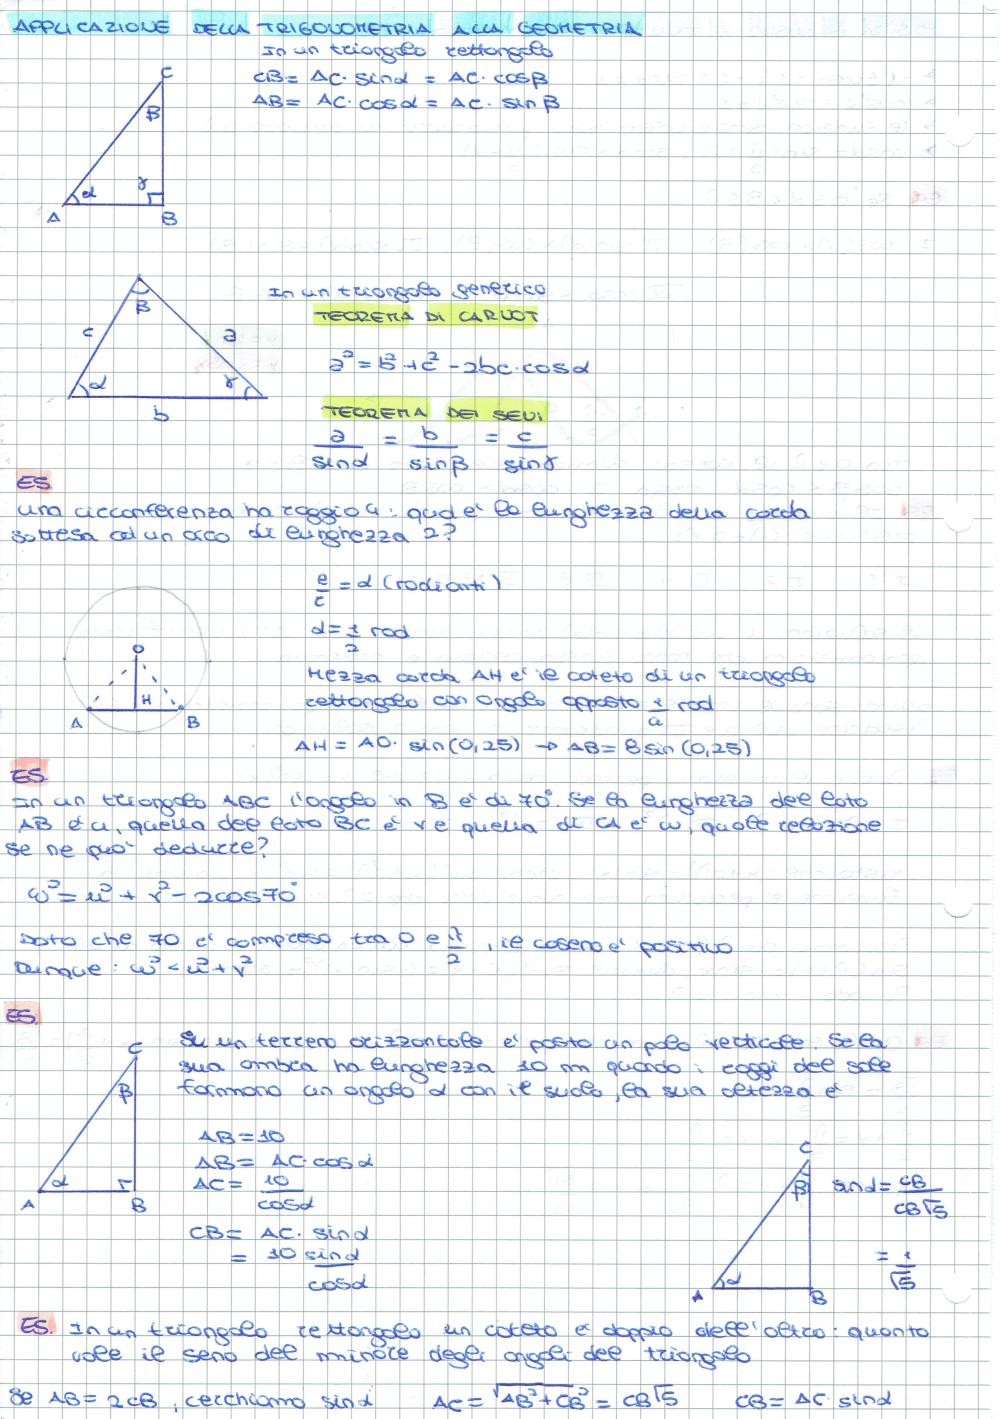 APPLICAZIONE DELLA TRIGONOMETRIA ALLA GEOMETRIA
In un triangolo rettangolo
CB = AC · sinα = AC · cosβ
AB = AC · cosα = AC · sinβ
C
β
α
γ
A
B
In un triangolo generico
TEOREMA DI CARNOT
a² = b² + c² - 2bc · cosα
β
c
a
α
γ
b
TEOREMA DEI SENI
a/sinα = b/sinβ = c/sinγ
ES
una circonferenza ha raggio 4: qual è la lunghezza della corda
sottesa ad un arco di lunghezza 2?
l/r = α (radianti)
α = 1/2 rad
O
H
A
B
Mezza corda AH è il cateto di un triangolo
rettangolo con angolo opposto 1/4 rad
AH = AO · sin(0,25) → AB = 8sin(0,25)
ES
In un triangolo ABC l'angolo in B è di 70°. Se la lunghezza del lato
AB è u, quella del lato BC è v e quella di CA è w, quale relazione
se ne può dedurre?
w² = u² + v² - 2cos70°
Dato che 70 è compreso tra 0 e π/2, il coseno è positivo
Dunque: w² < u² + v²
ES.
Su un terreno orizzontale è posto un palo verticale. Se la
sua ombra ha lunghezza 10 m quando i raggi del sole
formano un angolo α con il suolo, la sua altezza è
C
β
α
A
B
AB = 10
AB = AC · cosα
AC = 10/cosα
CB = AC · sinα
= 10 sinα/cosα
C
β
α
A
B
sinα = CB/CB√5
= 1/√5
ES. In un triangolo rettangolo un cateto è doppio dell'altro: quanto
vale il seno del minore degli angoli del triangolo
Se AB = 2CB, cerchiamo sinα AC = √AB² + CB² = CB√5 CB = AC · sinα